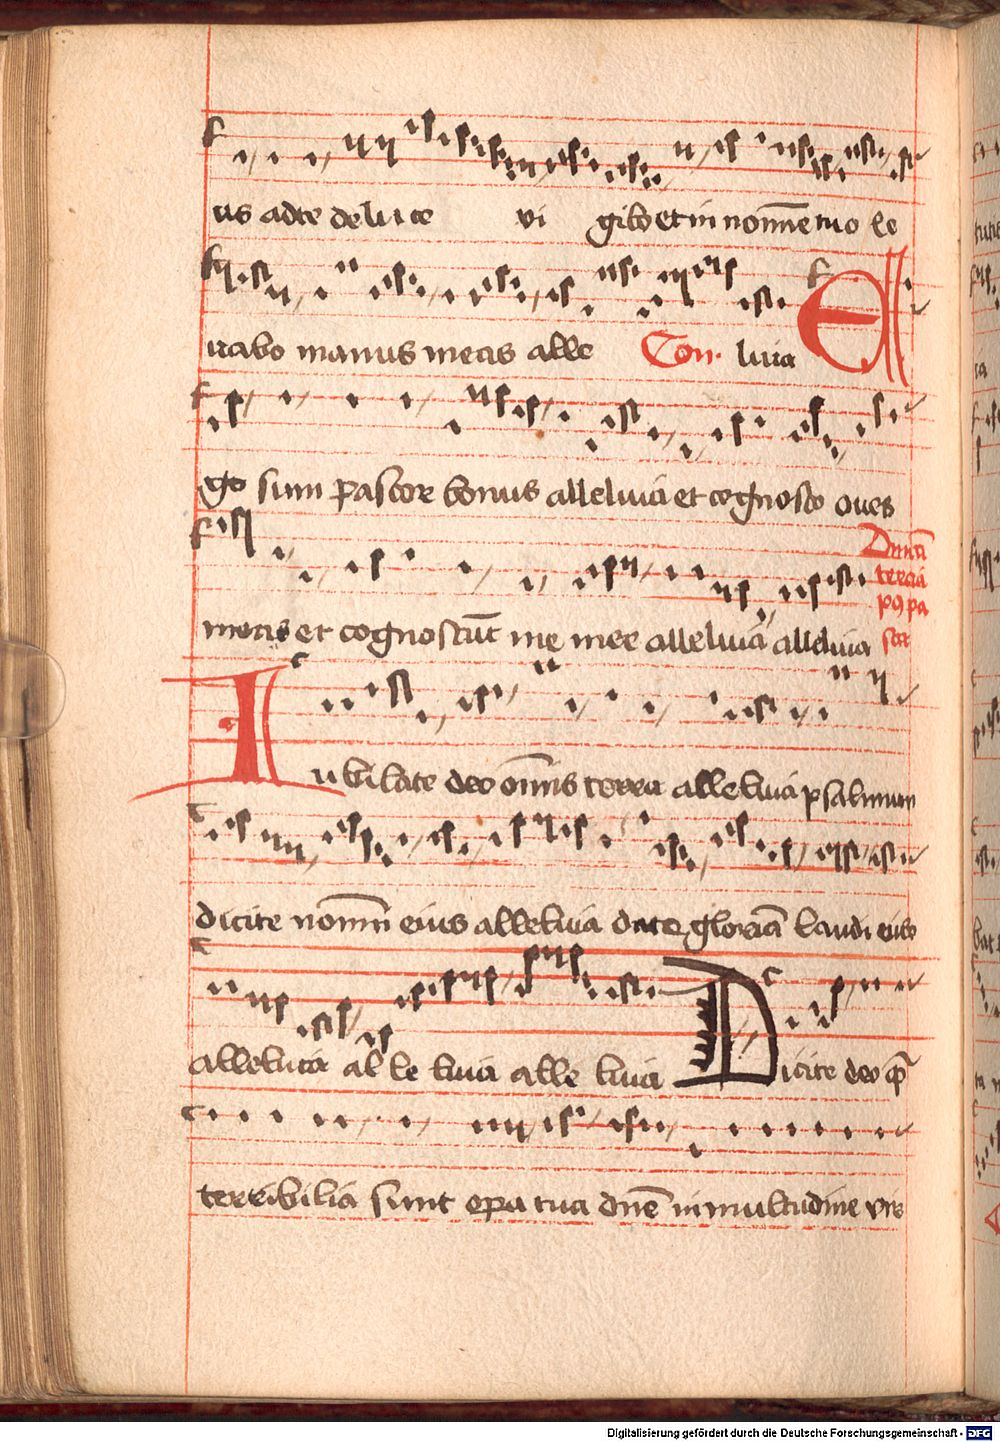 us ad te de luce vi gilo et in nomīe tuo le
uabo manus meas alle Con. luia E
go sum pastor bonus alleluia et cognosco oues
meas et cognoscūt me mee alleluia alleluia
Dmica
tercia
p9 pa
sca
Iubilate deo om̄is terra alleluia psalmum
dicite nomīn eius alleluia date gloriā laudi eius
alleluia al le luia alle luia Dicite deo q̄
terribilia sunt opa tua dn̄e in multudine vir
Digitalisierung gefördert durch die Deutsche Forschungsgemeinschaft - DFG